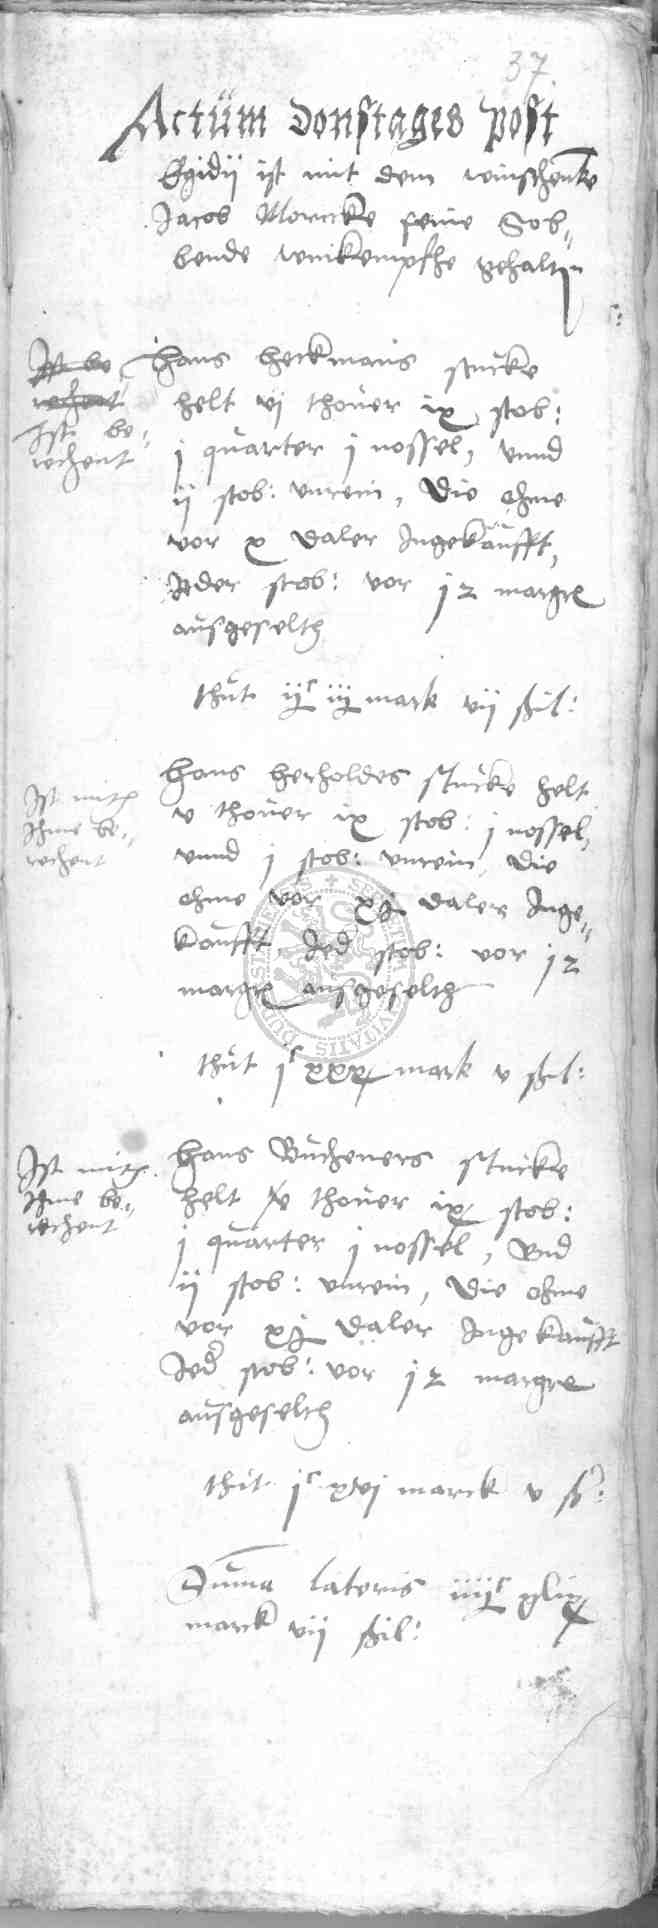 37.
Actüm donstages post
Egidij ist mit dem winschenke
Jacob Moricke seine Sob-
bende winkempfhe gehaltin
Ist be
rechent
Ist be-
rechent
Hans heckmans stucke
helt vj thover ix stob:
j quarter j nossel, vnnd
ij stob: vnrein, die ohme
vor x daler Ingekaufft,
Jeder stob: vor j2 margr
ausgeselth
thut ijc iij mark vij shil:
Ist mit
Ihme be-
rechent
Hans herholdes stucke helt
v thover ix stob: j nossel,
vnnd j stob: vnrein, die
ohme vor xj daler Inge-
kaufft Jed stob: vor j2
margr ausgeselth
thut jc xxx mark v shil:
Ist mit
Ihme be-
rechent
Hans Bucheners stucke
helt v thover ix stob:
j quarter j nossel, Vnd
ij stob: vnrein, die ohme
vor xj daler Ingekaufft
Jeder stob: vor j2 margr
ausgeselth
thut jc xvj marck v sh:
Suma lateris iiijc xlix
marck vij shil: